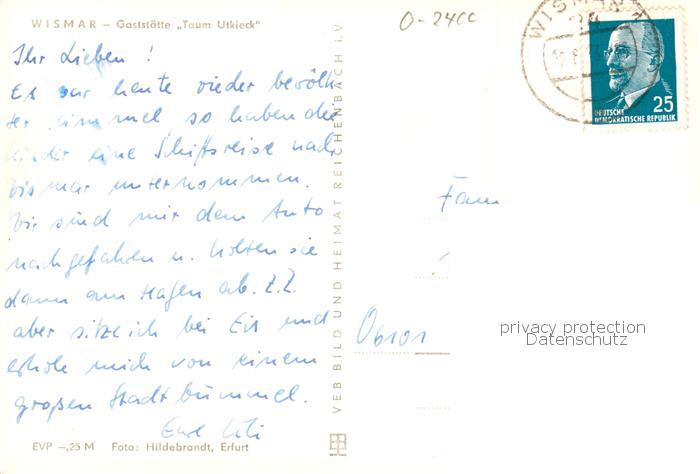 WISMAR – Gaststätte „Taum Utkieck"
O-2400
Ihr Lieben!
Es war heute wieder bewölk-
ter Himmel, so haben die
Kinder eine Schiffsreise nach
Wismar unternommen.
Wir sind mit dem Auto
nachgefahren u. holten sie
dann am Hafen ab. Z.Z.
aber sitze ich bei Eis und
erhole mich von einem
großen Stadtbummel.
Eure
EVP –,25 M Foto: Hildebrandt, Erfurt
VEB BILD UND HEIMAT REICHENBACH i. V.
WISMAR 1
25
DEUTSCHE
DEMOKRATISCHE REPUBLIK
Fam
privacy protection
Datenschutz